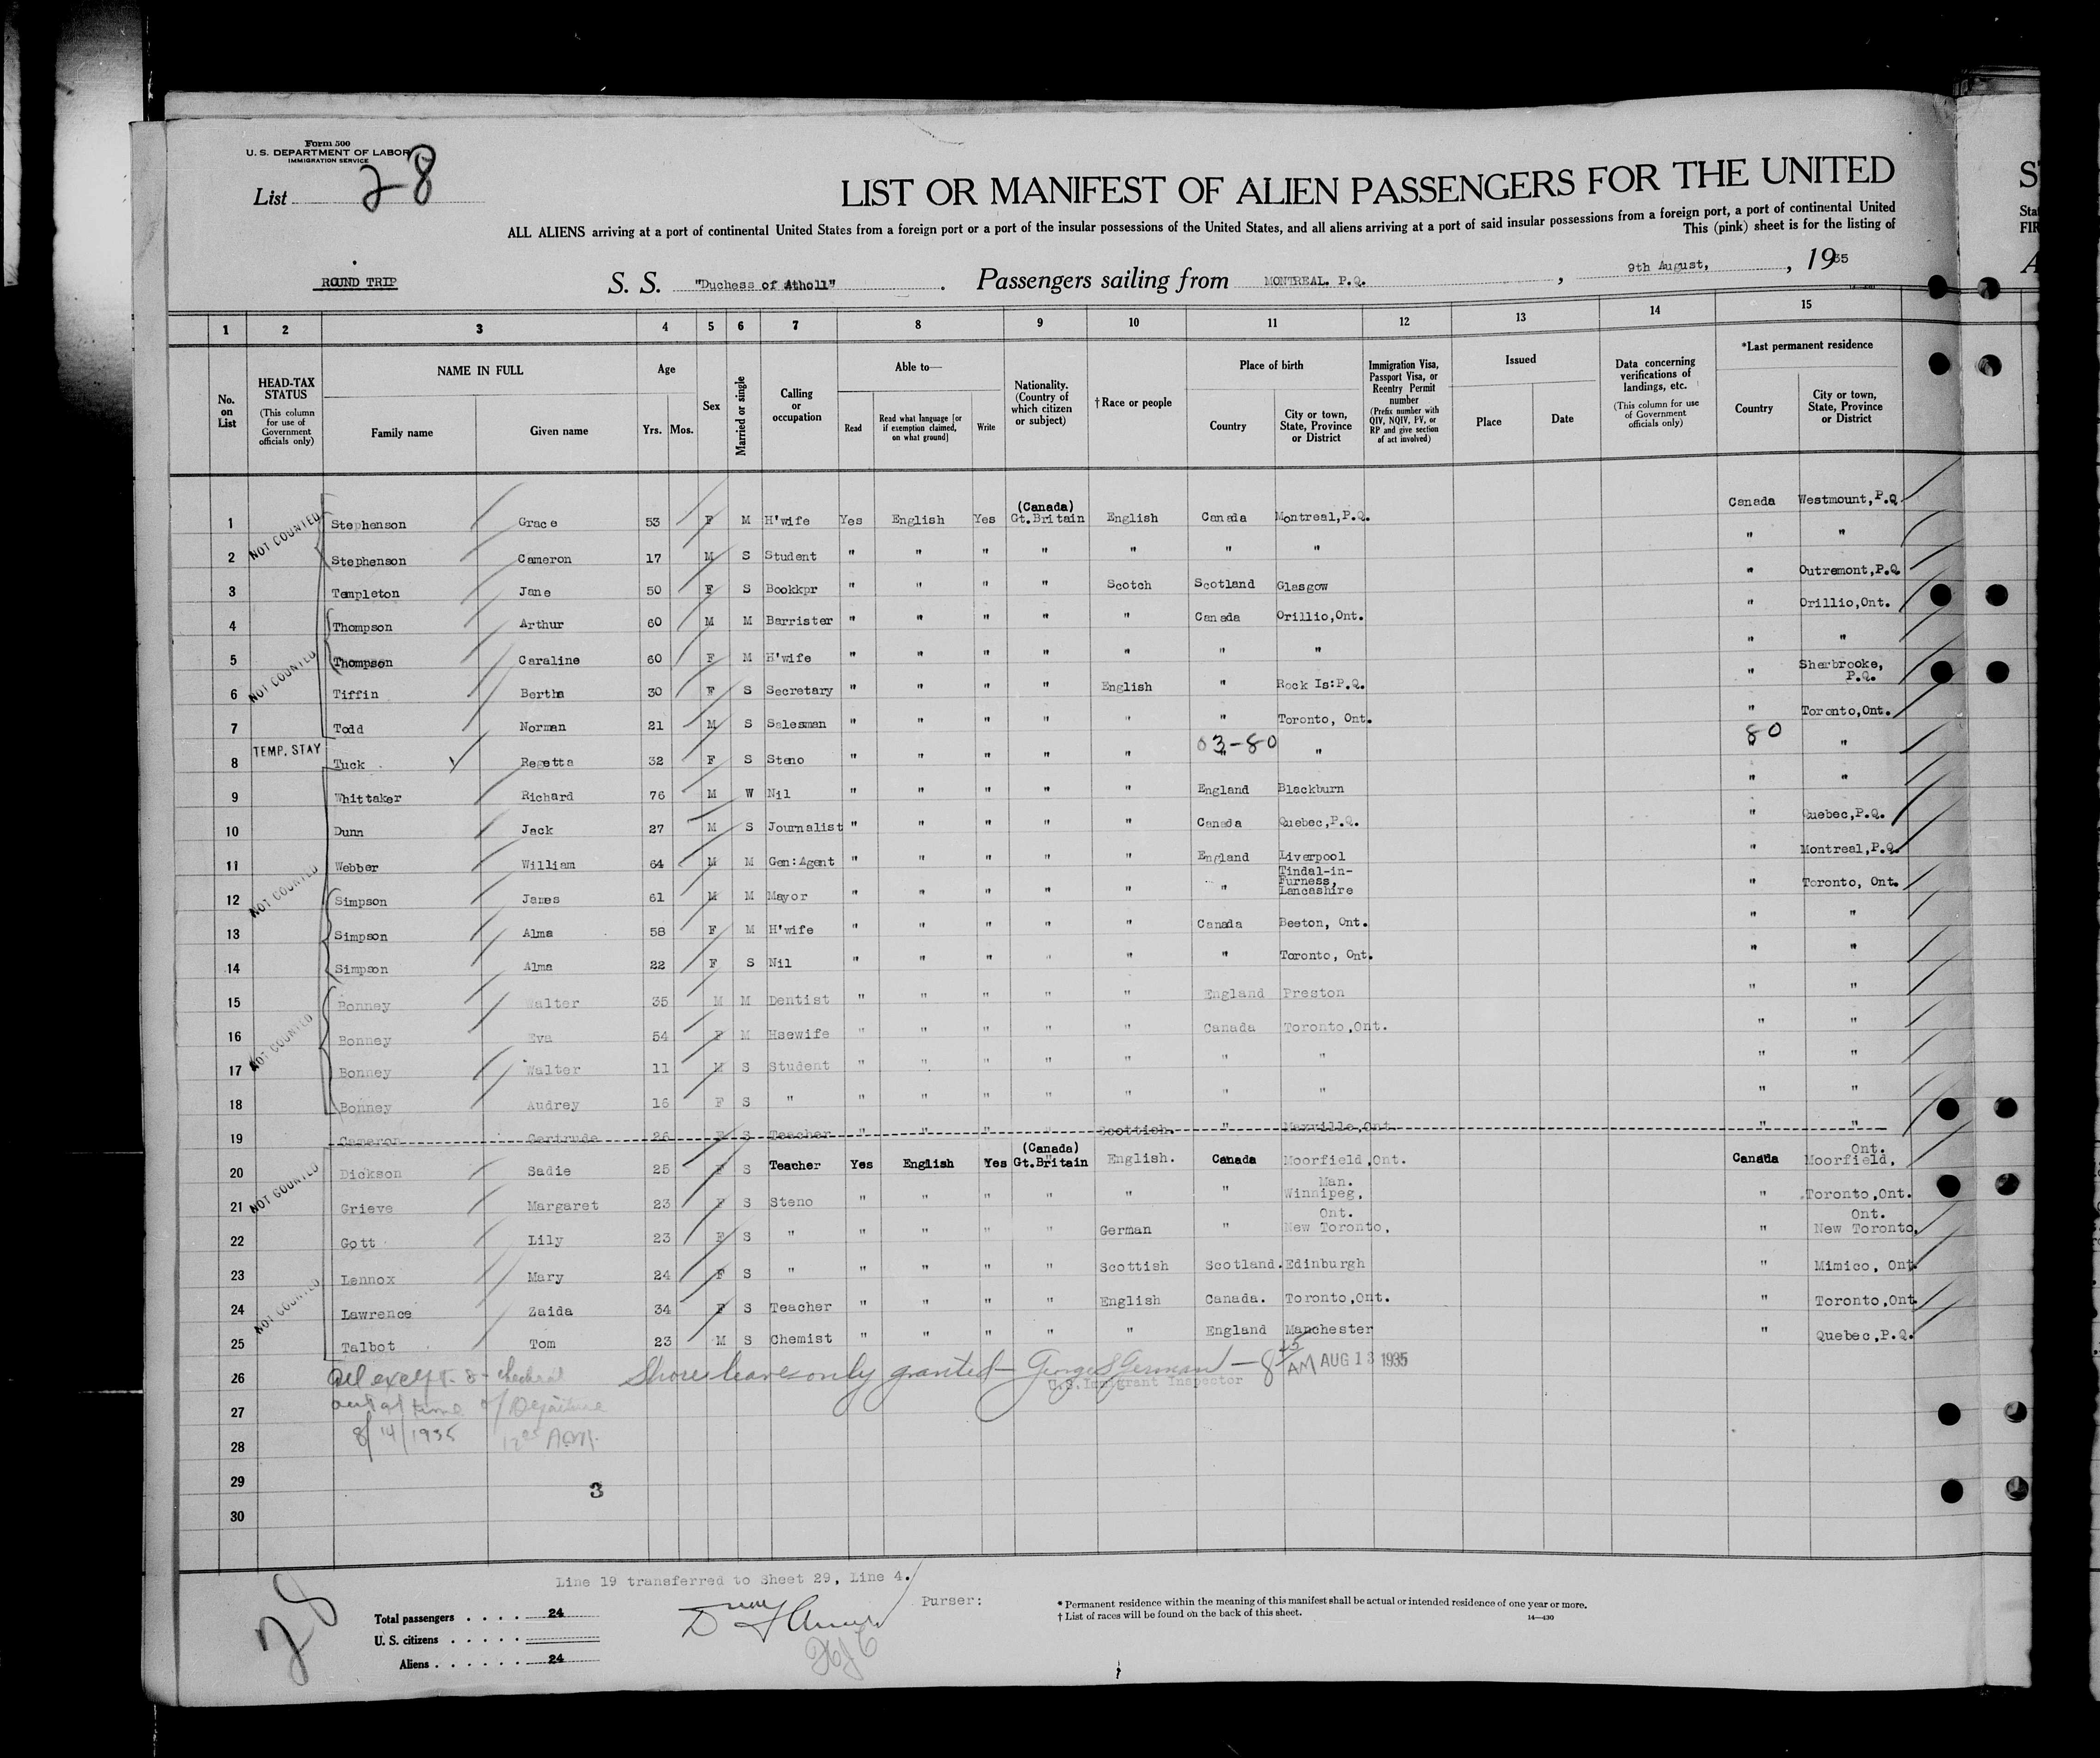 Form 500
U. S. DEPARTMENT OF LABOR
IMMIGRATION SERVICE
List 28
LIST OR MANIFEST OF ALIEN PASSENGERS FOR THE UNITED
ALL ALIENS arriving at a port of continental United States from a foreign port or a port of the insular possessions of the United States, and all aliens arriving at a port of said insular possessions from a foreign port, a port of continental United
This (pink) sheet is for the listing of
ROUND TRIP S. S. "Duchess of Atholl" . Passengers sailing from MONTREAL. P.Q. , 9th August, , 1935
1 2 3 4 5 6 7 8 9 10 11 12 13 14 15
No. on List
HEAD-TAX STATUS
(This column for use of Government officials only)
NAME IN FULL
Family name Given name
Age
Yrs. Mos.
Sex
Married or single
Calling or occupation
Able to—
Read Read what language [or if exemption claimed, on what ground] Write
Nationality. (Country of which citizen or subject)
†Race or people
Place of birth
Country City or town, State, Province or District
Immigration Visa, Passport Visa, or Reentry Permit number
(Prefix number with QIV, NQIV, PV, or RP and give section of act involved)
Issued
Place Date
Data concerning verifications of landings, etc.
(This column for use of Government officials only)
*Last permanent residence
Country City or town, State, Province or District
1 Stephenson Grace 53 F M H'wife Yes English Yes (Canada) Gt.Britain English Canada Montreal,P.Q. Canada Westmount,P.Q
NOT COUNTED
2 Stephenson Cameron 17 M S Student " " " " " " " " "
3 Templeton Jane 50 F S Bookkpr " " " " Scotch Scotland Glasgow " Outremont,P.Q
4 Thompson Arthur 60 M M Barrister " " " " " Canada Orillio,Ont. " Orillio,Ont.
5 Thompson Caraline 60 F M H'wife " " " " " " " " "
NOT COUNTED
6 Tiffin Bertha 30 F S Secretary " " " " English " Rock Is:P.Q. " Sherbrooke, P.Q.
7 Todd Norman 21 M S Salesman " " " " " " Toronto, Ont. " Toronto,Ont.
TEMP. STAY 03-80 80
8 Tuck Regetta 32 F S Steno " " " " " " " " "
9 Whittaker Richard 76 M W Nil " " " " " England Blackburn " "
10 Dunn Jack 27 M S Journalist " " " " " Canada Quebec,P.Q. " Quebec,P.Q.
11 Webber William 64 M M Gen:Agent " " " " " England Liverpool " Montreal,P.Q.
NOT COUNTED
12 Simpson James 61 M M Mayor " " " " " " Tindal-in-Furness, Lancashire " Toronto, Ont.
13 Simpson Alma 58 F M H'wife " " " " " Canada Beeton, Ont. " "
14 Simpson Alma 22 F S Nil " " " " " " Toronto, Ont. " "
15 Bonney Walter 35 M M Dentist " " " " " England Preston " "
16 Bonney Eva 54 F M Hsewife " " " " " Canada Toronto,Ont. " "
NOT COUNTED
17 Bonney Walter 11 M S Student " " " " " " " " "
18 Bonney Audrey 16 F S " " " " " " " " " "
19 Cameron Gertrude 26 F S Teacher " " " " Scottish. " Maxville,Ont. " "
20 Dickson Sadie 25 F S Teacher Yes English Yes (Canada) Gt.Britain English. Canada Moorfield,Ont. Canada Moorfield, Ont.
NOT COUNTED
21 Grieve Margaret 23 F S Steno " " " " " " Winnipeg, Man. " Toronto,Ont.
22 Gott Lily 23 F S " " " " " German " New Toronto, Ont. " New Toronto, Ont.
23 Lennox Mary 24 F S " " " " " Scottish Scotland. Edinburgh " Mimico, Ont
NOT COUNTED
24 Lawrence Zaida 34 F S Teacher " " " " English Canada. Toronto,Ont. " Toronto,Ont
25 Talbot Tom 23 M S Chemist " " " " " England Manchester " Quebec,P.Q.
26 All except 8 checked Shore leave only granted — George S German — 8 25 AM AUG 13 1935
U.S. Immigrant Inspector
27 out at time of Departure
28 8/14/1935 12 AM
29 3
30
Line 19 transferred to Sheet 29, Line 4.
Purser:
28
Total passengers . . . . 24
U. S. citizens . . . . .
Aliens . . . . . . 24
* Permanent residence within the meaning of this manifest shall be actual or intended residence of one year or more.
† List of races will be found on the back of this sheet.
14—430